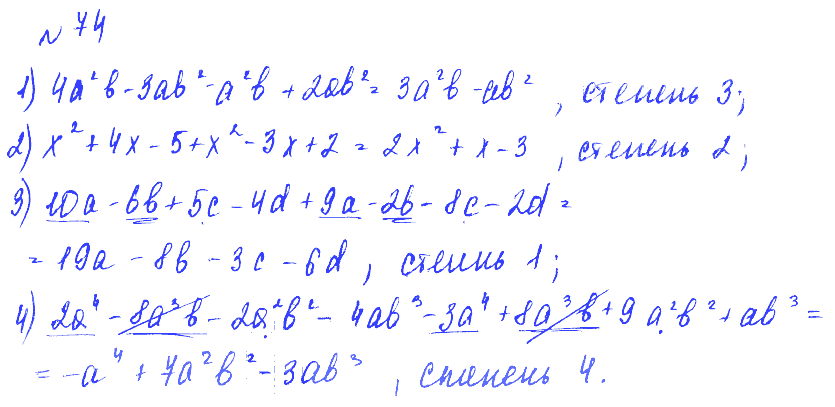 № 74
1) 4a²b - 3ab² - a²b + 2ab² = 3a²b - ab², степень 3;
2) x² + 4x - 5 + x² - 3x + 2 = 2x² + x - 3, степень 2;
3) 10a - 6b + 5c - 4d + 9a - 2b - 8c - 2d =
= 19a - 8b - 3c - 6d, степень 1;
4) 2a⁴ - 8a³b - 2a²b² - 4ab³ - 3a⁴ + 8a³b + 9a²b² + ab³ =
= -a⁴ + 7a²b² - 3ab³, степень 4.